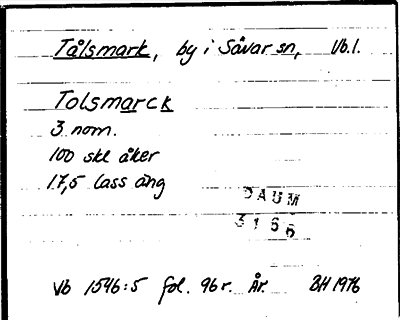 Tålsmark, by i Sävar sn, Vb.l.
Tolsmarck
3 nom.
100 skl åker
17,5 lass äng
DAUM
3166
Vb 1546:5 fol. 96r. År. BH 1976